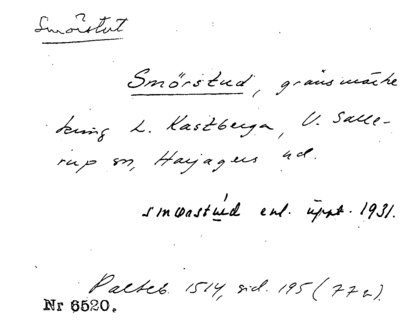 Smörstut
Smörstud, gränsmärke
kring L. Kastberga, V. Salle-
rup sn, Harjagers hd.
enl. uppt. 1931.
Palteb. 1514, sid. 195 (77a).
Nr 6520.